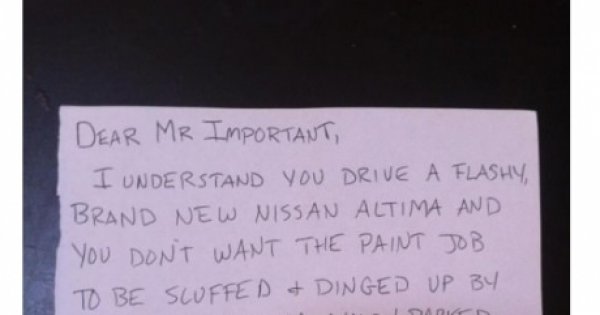 DEAR MR IMPORTANT,
I UNDERSTAND YOU DRIVE A FLASHY,
BRAND NEW NISSAN ALTIMA AND
YOU DON'T WANT THE PAINT JOB
TO BE SCUFFED & DINGED UP BY
PARKED